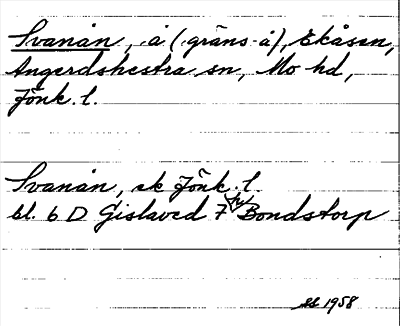 Svanån, å (gräns-å), Ekåsen,
Ångerdshestra sn, Mo hd,
Jönk. l.
Svanån, ek Jönk. l.
bl. 6 D Gislaved 7 h/ Bondstorp
1958